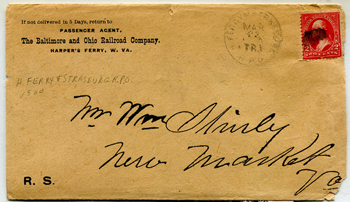 If not delivered in 5 Days, return to
PASSENGER AGENT,
The Baltimore and Ohio Railroad Company,
HARPER'S FERRY, W. VA.
MAR
TR.1
H. FERRY & STRASBURG R.P.O.
Mr. Wm Shirly
New Market
Va
R. S.